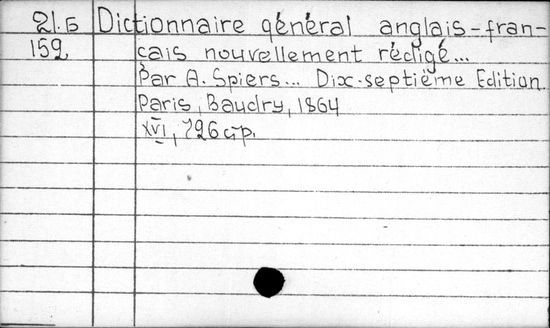 21.5 Dictionnaire général anglais-fran-
159 çais nouvellement rédigé...
Par A. Spiers... Dix-septième Edition.
Paris, Baudry, 1864
XVI, 726 p.